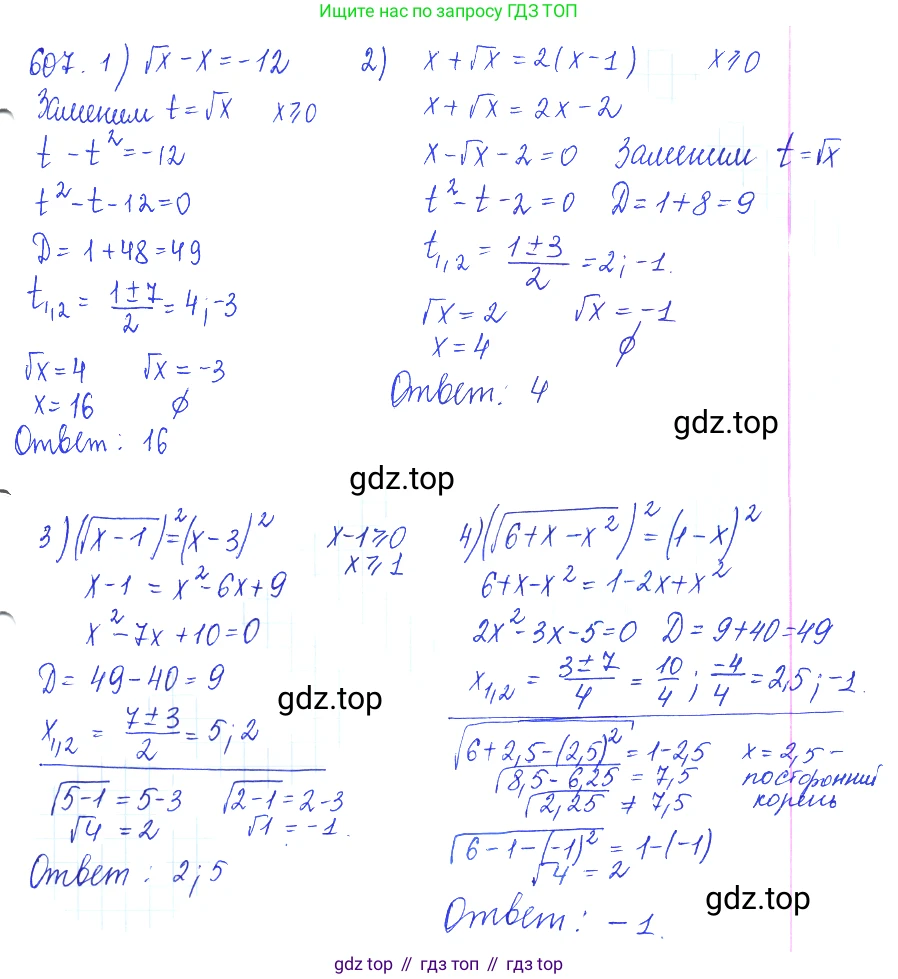 Ищите нас по запросу ГДЗ ТОП
607. 1) √x - x = -12
Заменим t = √x x ≥ 0
t - t² = -12
t² - t - 12 = 0
D = 1 + 48 = 49
t₁,₂ = (1 ± 7)/2 = 4; -3
√x = 4 √x = -3
x = 16 ∅
Ответ: 16
2) x + √x = 2(x - 1) x ≥ 0
x + √x = 2x - 2
x - √x - 2 = 0 Заменим t = √x
t² - t - 2 = 0 D = 1 + 8 = 9
t₁,₂ = (1 ± 3)/2 = 2; -1.
√x = 2 √x = -1
x = 4 ∅
Ответ: 4
gdz.top
gdz.top
3) (√(x - 1))² = (x - 3)² x - 1 ≥ 0
x ≥ 1
x - 1 = x² - 6x + 9
x² - 7x + 10 = 0
D = 49 - 40 = 9
x₁,₂ = (7 ± 3)/2 = 5; 2
√(5 - 1) = 5 - 3 √(2 - 1) = 2 - 3
√4 = 2 √1 = -1.
Ответ: 2; 5
gdz.top
4) (√(6 + x - x²))² = (1 - x)²
6 + x - x² = 1 - 2x + x²
2x² - 3x - 5 = 0 D = 9 + 40 = 49
x₁,₂ = (3 ± 7)/4 = 10/4; -4/4 = 2,5; -1.
√(6 + 2,5 - (2,5)²) = 1 - 2,5 x = 2,5 -
√(8,5 - 6,25) = 7,5 посторонний
√(2,25) ≠ 7,5 корень
√(6 - 1 - (-1)²) = 1 - (-1)
√4 = 2
Ответ: -1.
gdz.top
gdz.top // гдз топ // гдз.top